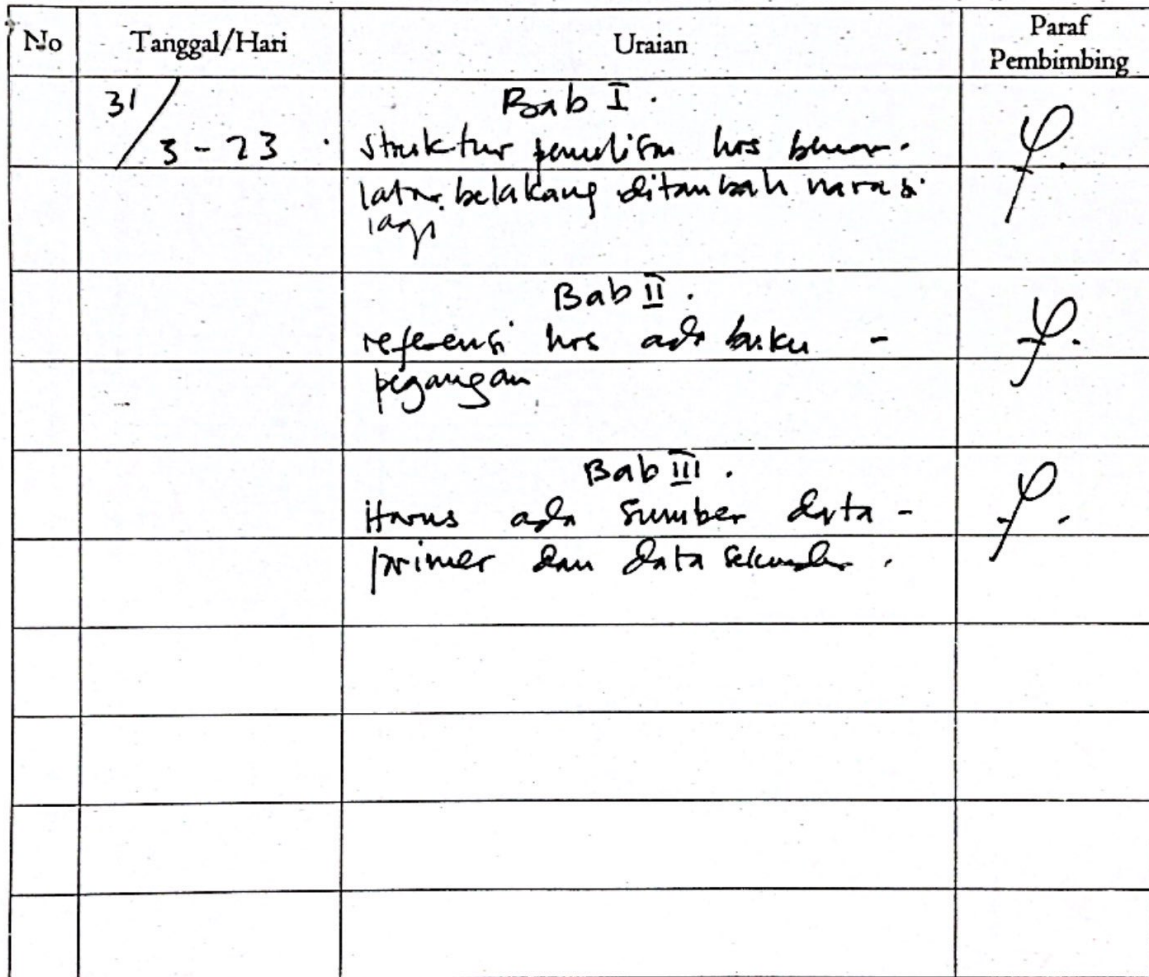 No Tanggal/Hari Uraian Paraf Pembimbing
31/3-23 Bab I.
struktur penulisan hrs benar.
latar belakang ditambah narasi
lagi
Bab II.
referensi hrs ada buku -
pegangan
Bab III.
Harus ada Sumber data -
primer dan data sekunder.